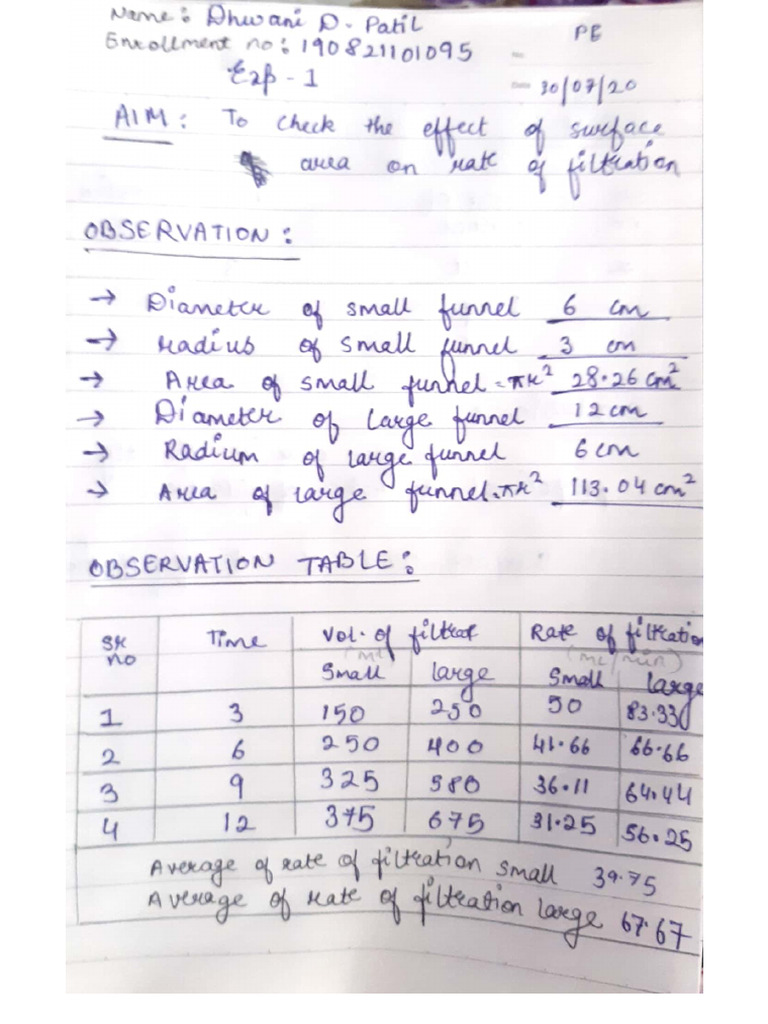 Name: Dhwani D. Patil
PE
Enrollment no: 190821101095
Exp - 1
30/07/20
AIM: To check the effect of surface
area on rate of filtration
OBSERVATION:
→ Diameter of small funnel 6 cm
→ radius of small funnel 3 cm
→ Area of small funnel = πr² 28.26 cm²
→ Diameter of large funnel 12 cm
→ Radium of large funnel 6 cm
→ Area of large funnel = πr² 113.04 cm²
OBSERVATION TABLE:
Sr no Time Vol. of filtrat (ml) Rate of filtration (ml/min)
Small large Small large
1 3 150 250 50 83.330
2 6 250 400 41.66 66.66
3 9 325 580 36.11 64.44
4 12 375 675 31.25 56.25
Average of rate of filtration small 39.75
Average of rate of filtration large 67.67